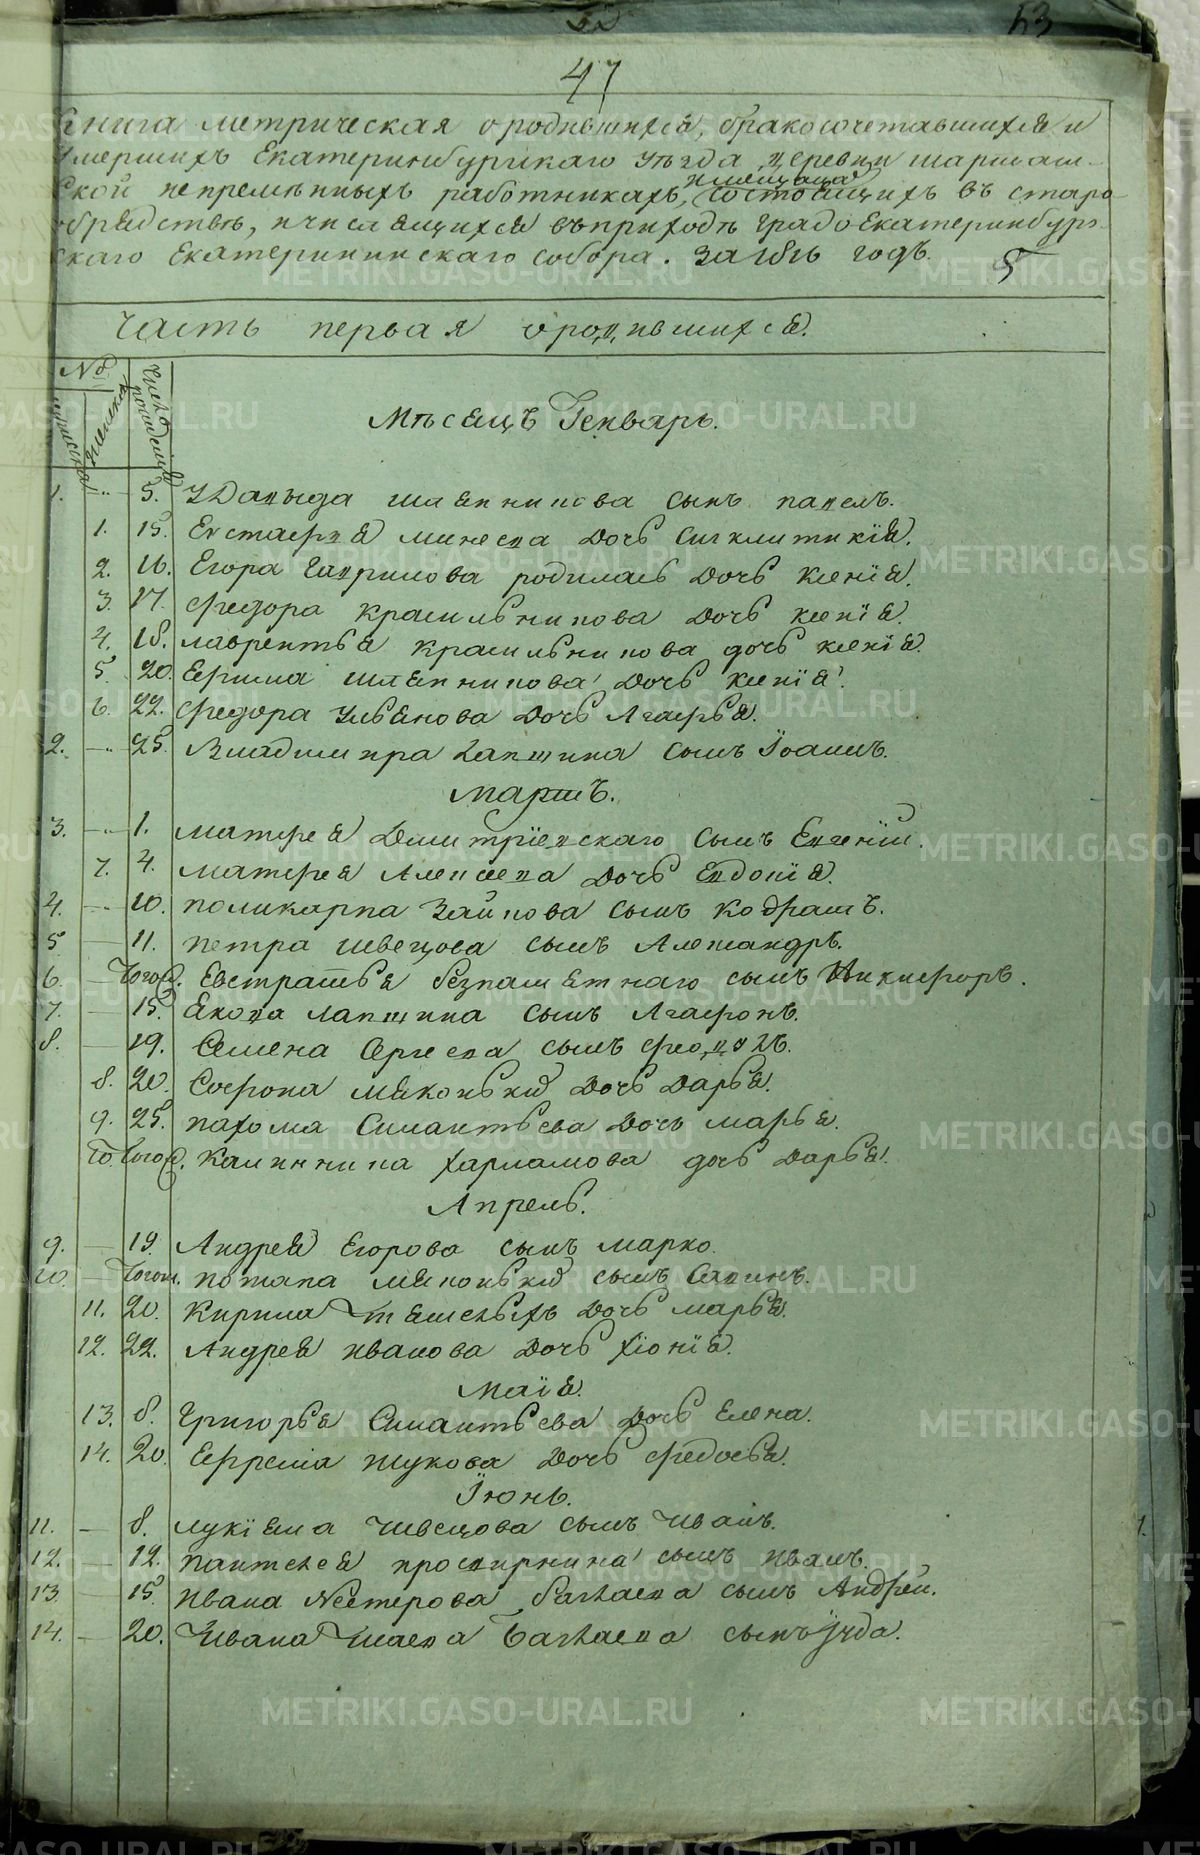 53
47
Книга метрическая о родившихся, бракосочетавшихся и
умершихъ Екатеринбургскаго уѣзда деревни шарташ-
ской непремѣнныхъ работникахъ, состоящихъ въ старо-
обрядствѣ, и числящихся въ приходѣ градо Екатеринбург-
скаго Екатерининскаго собора. За годъ. 5
Часть первая о родившихся.
№
Мѣсяцъ Генварь.
1. 5. У Давыда шляпникова сынъ павелъ.
1. 15. Евстафия минеева дочь Сигклитикія.
2. 16. Егора Гаврилова родилась дочь ксенія.
3. 17. федора красильникова дочь ксенія.
4. 18. лаврентья красильникова дочь ксенія.
5. 20. шляпникова дочь ксенія.
6. 22. федора Ульянова дочь Агафья.
2. 25. Владимира лапшина сынъ Іоаннъ.
Мартъ.
3. 1. матфея Дмитріевскаго сынъ Евгеній.
7. 4. матфея Алексеева дочь Евдокія.
4. 10. поликарпа Зайкова сынъ кодратъ.
5 11. петра швецова сынъ Александръ.
6. тогож. Евстратья безпамятнаго сынъ Никифоръ.
7. 15. Якова лапшина сынъ Агафонъ.
8. 19. Семена Сергеева сынъ
8. 20. Софрона мяконькихъ дочь дарья.
9. 25. пахома Силантьева дочь марья.
10. тогож. Калинника харламова дочь дарья.
Апрель.
9. 19. Андрея Егорова сынъ марко.
10. тогож. потапа мяконькихъ сынъ Савинъ.
11. 20. Кирила дочь марья.
12. 22. Андрея иванова дочь хіонія.
Маія.
13. 8. Григорья Силантьева дочь Елена.
14. 20. Ефрема жукова дочь федосья.
Іюнь.
11. 8. лукіяна Швецова сынъ Иванъ.
12. 12. пантелея просвирнина сынъ иванъ.
13. 15. ивана Нестерова багаева сынъ Андрей.
14. 20. Ивана Исаева Багаева сынъ Іуда.
METRIKI.GASO-URAL.RU